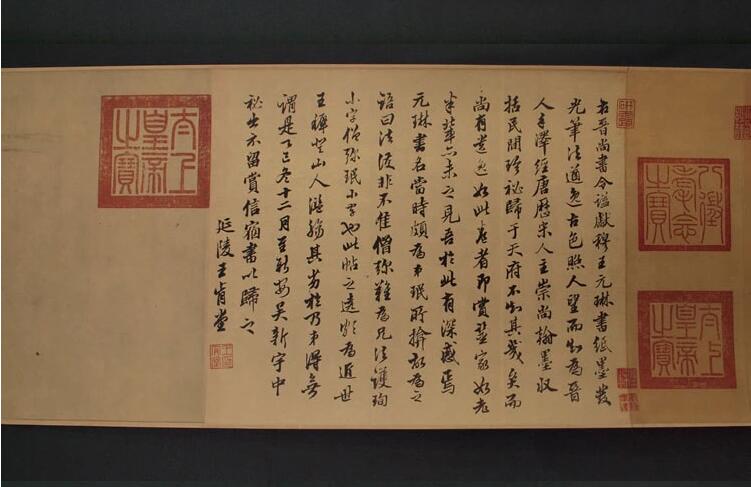 八徵耄念之寶
太上皇帝之寶
右晉尚書令諡獻穆王元琳書紙墨發
光筆法遒逸古色照人望而知為晉
人手澤經唐歷宋人主崇尚翰墨收
括民間珍秘歸于天府不知其幾矣而
尚有遺逸如此卷者即賞鑒家如老
米輩亦未之見吾於此有深感焉
元琳書名當時頗為弟珉所掩故為之
語曰法護非不佳僧彌難為兄法護珣
小字僧彌珉小字也此帖之為近世
王穉登山人濫觴其劣於乃弟得無
謂是乙巳冬十二月至新安吳新宇中
秘出示留賞信宿書以歸之
延陵王肯堂
太上皇帝之寶